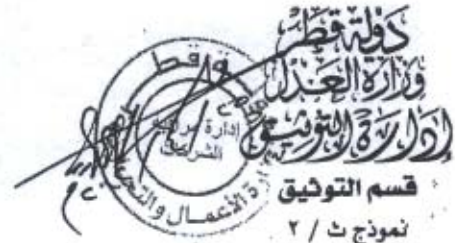 دولة قطر
وزارة العدل
إدارة التوثيق
قسم التوثيق
نموذج ث / ٢
قط
إدارة
الأعمال والتج